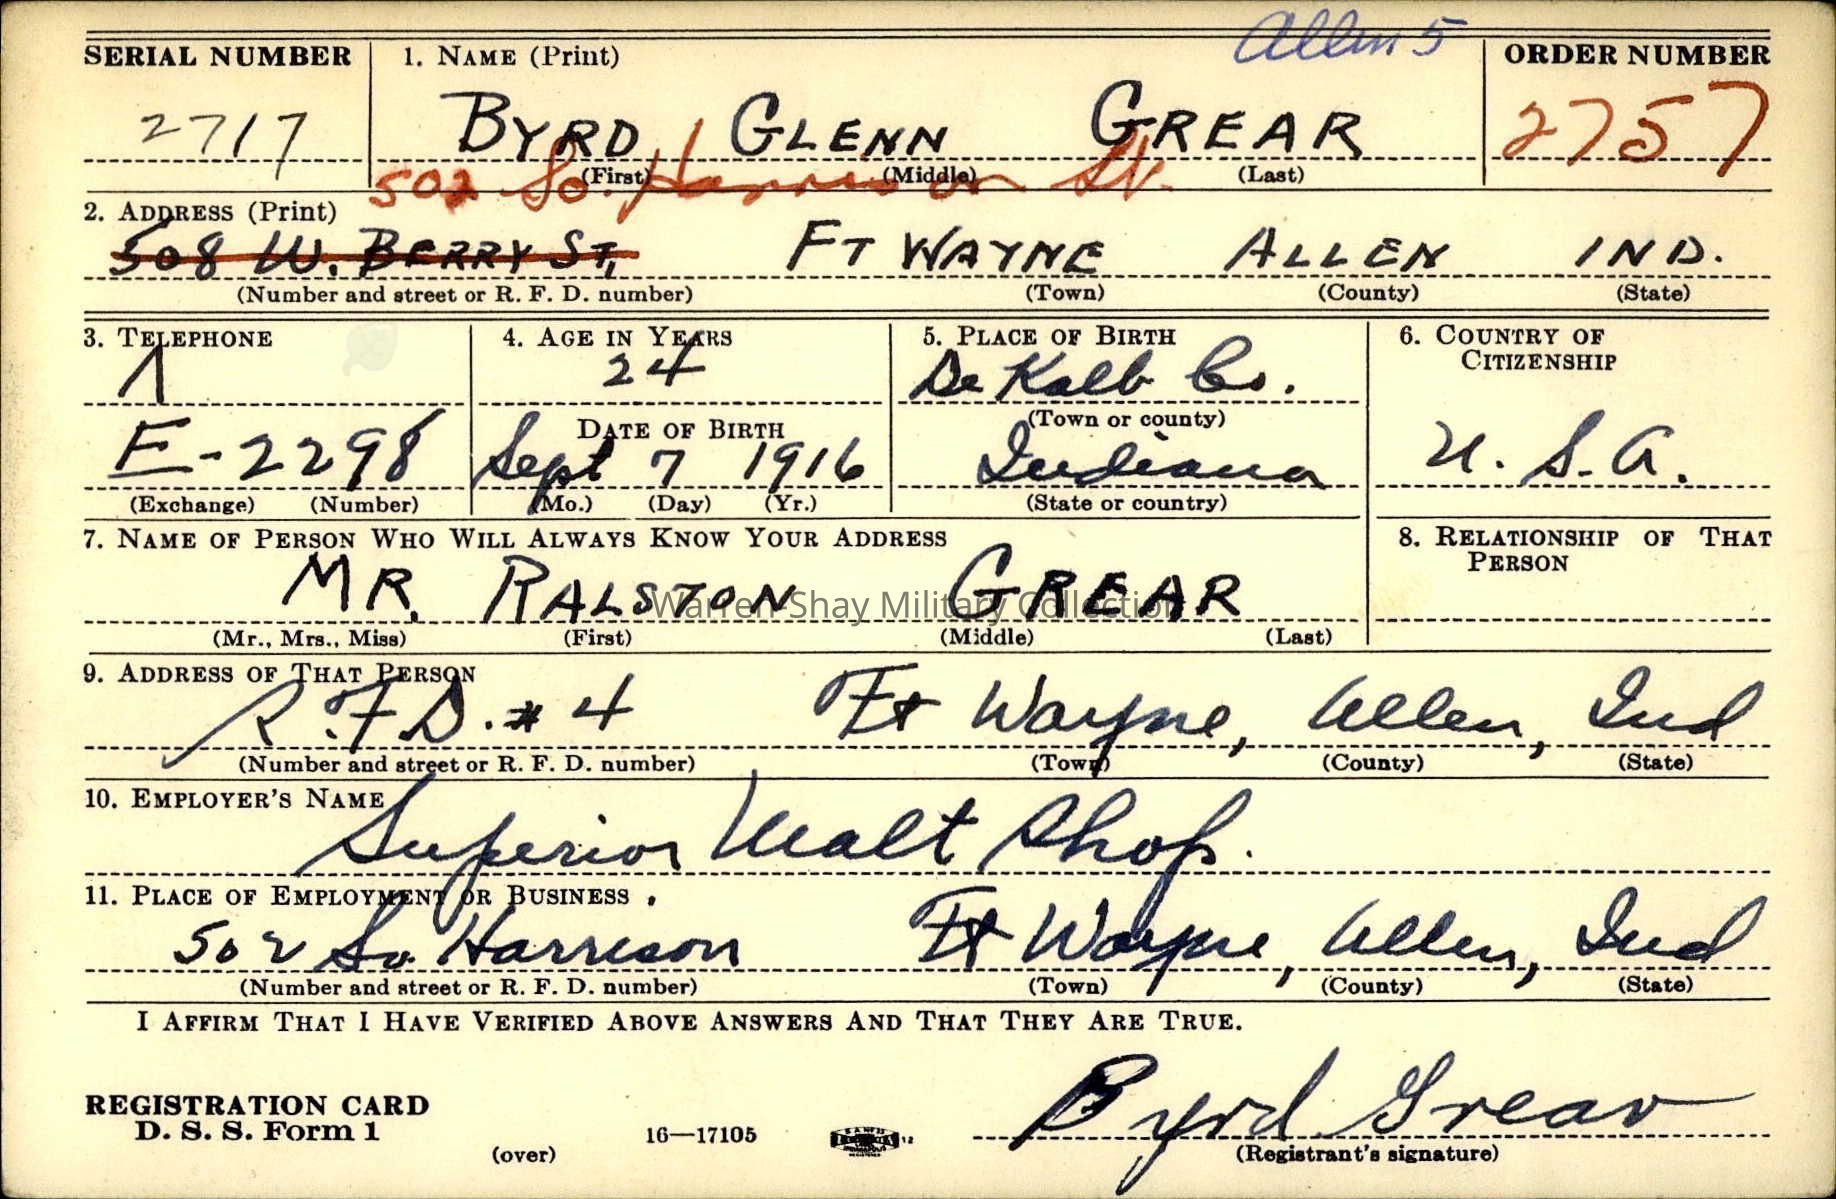 Allen 5
SERIAL NUMBER 1. NAME (Print) ORDER NUMBER
2717 BYRD GLENN GREAR 2757
(First) (Middle) (Last)
502 So. Harrison St.
2. ADDRESS (Print)
508 W. BERRY ST, FT WAYNE ALLEN IND.
(Number and street or R. F. D. number) (Town) (County) (State)
3. TELEPHONE 4. AGE IN YEARS 5. PLACE OF BIRTH 6. COUNTRY OF
CITIZENSHIP
24 De Kalb Co.
DATE OF BIRTH (Town or county)
E-2298 Sept 7 1916 Indiana U. S. A.
(Exchange) (Number) (Mo.) (Day) (Yr.) (State or country)
7. NAME OF PERSON WHO WILL ALWAYS KNOW YOUR ADDRESS 8. RELATIONSHIP OF THAT
PERSON
MR. RALSTON GREAR
Warren-Shay Military Collection
(Mr., Mrs., Miss) (First) (Middle) (Last)
9. ADDRESS OF THAT PERSON
R.F.D. # 4 Ft Wayne, Allen, Ind
(Number and street or R. F. D. number) (Town) (County) (State)
10. EMPLOYER'S NAME
Superior Malt Shop.
11. PLACE OF EMPLOYMENT OR BUSINESS .
502 So. Harrison Ft Wayne, Allen, Ind
(Number and street or R. F. D. number) (Town) (County) (State)
I AFFIRM THAT I HAVE VERIFIED ABOVE ANSWERS AND THAT THEY ARE TRUE.
Byrd Grear
REGISTRATION CARD
D. S. S. Form 1 16—17105 12
(over) (Registrant's signature)